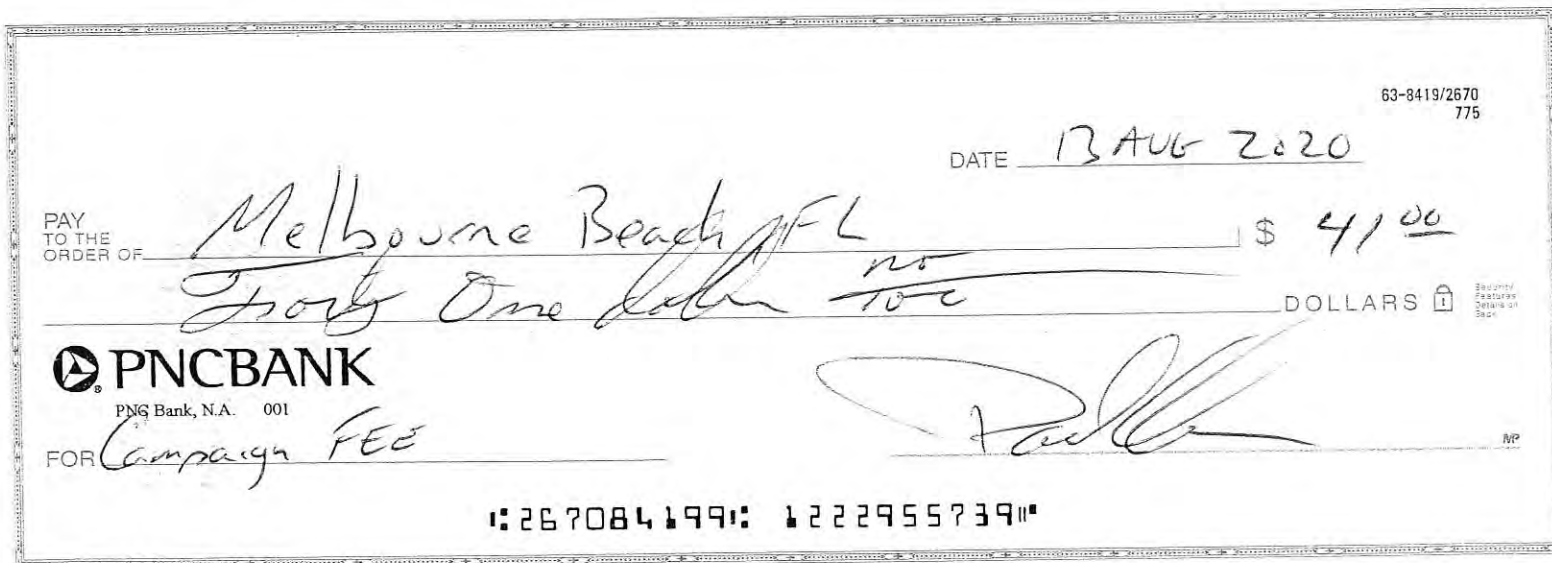 63-8419/2670
775
DATE 13 AUG 2020
PAY
TO THE
ORDER OF Melbourne Beach, FL $ 41 00
Forty One dollar no/100 DOLLARS
Security
Features
Details on
Back
PNCBANK
PNC Bank, N.A. 001
FOR Campaign FEE
MP
⑆267084199⑆ 1222955739⑈